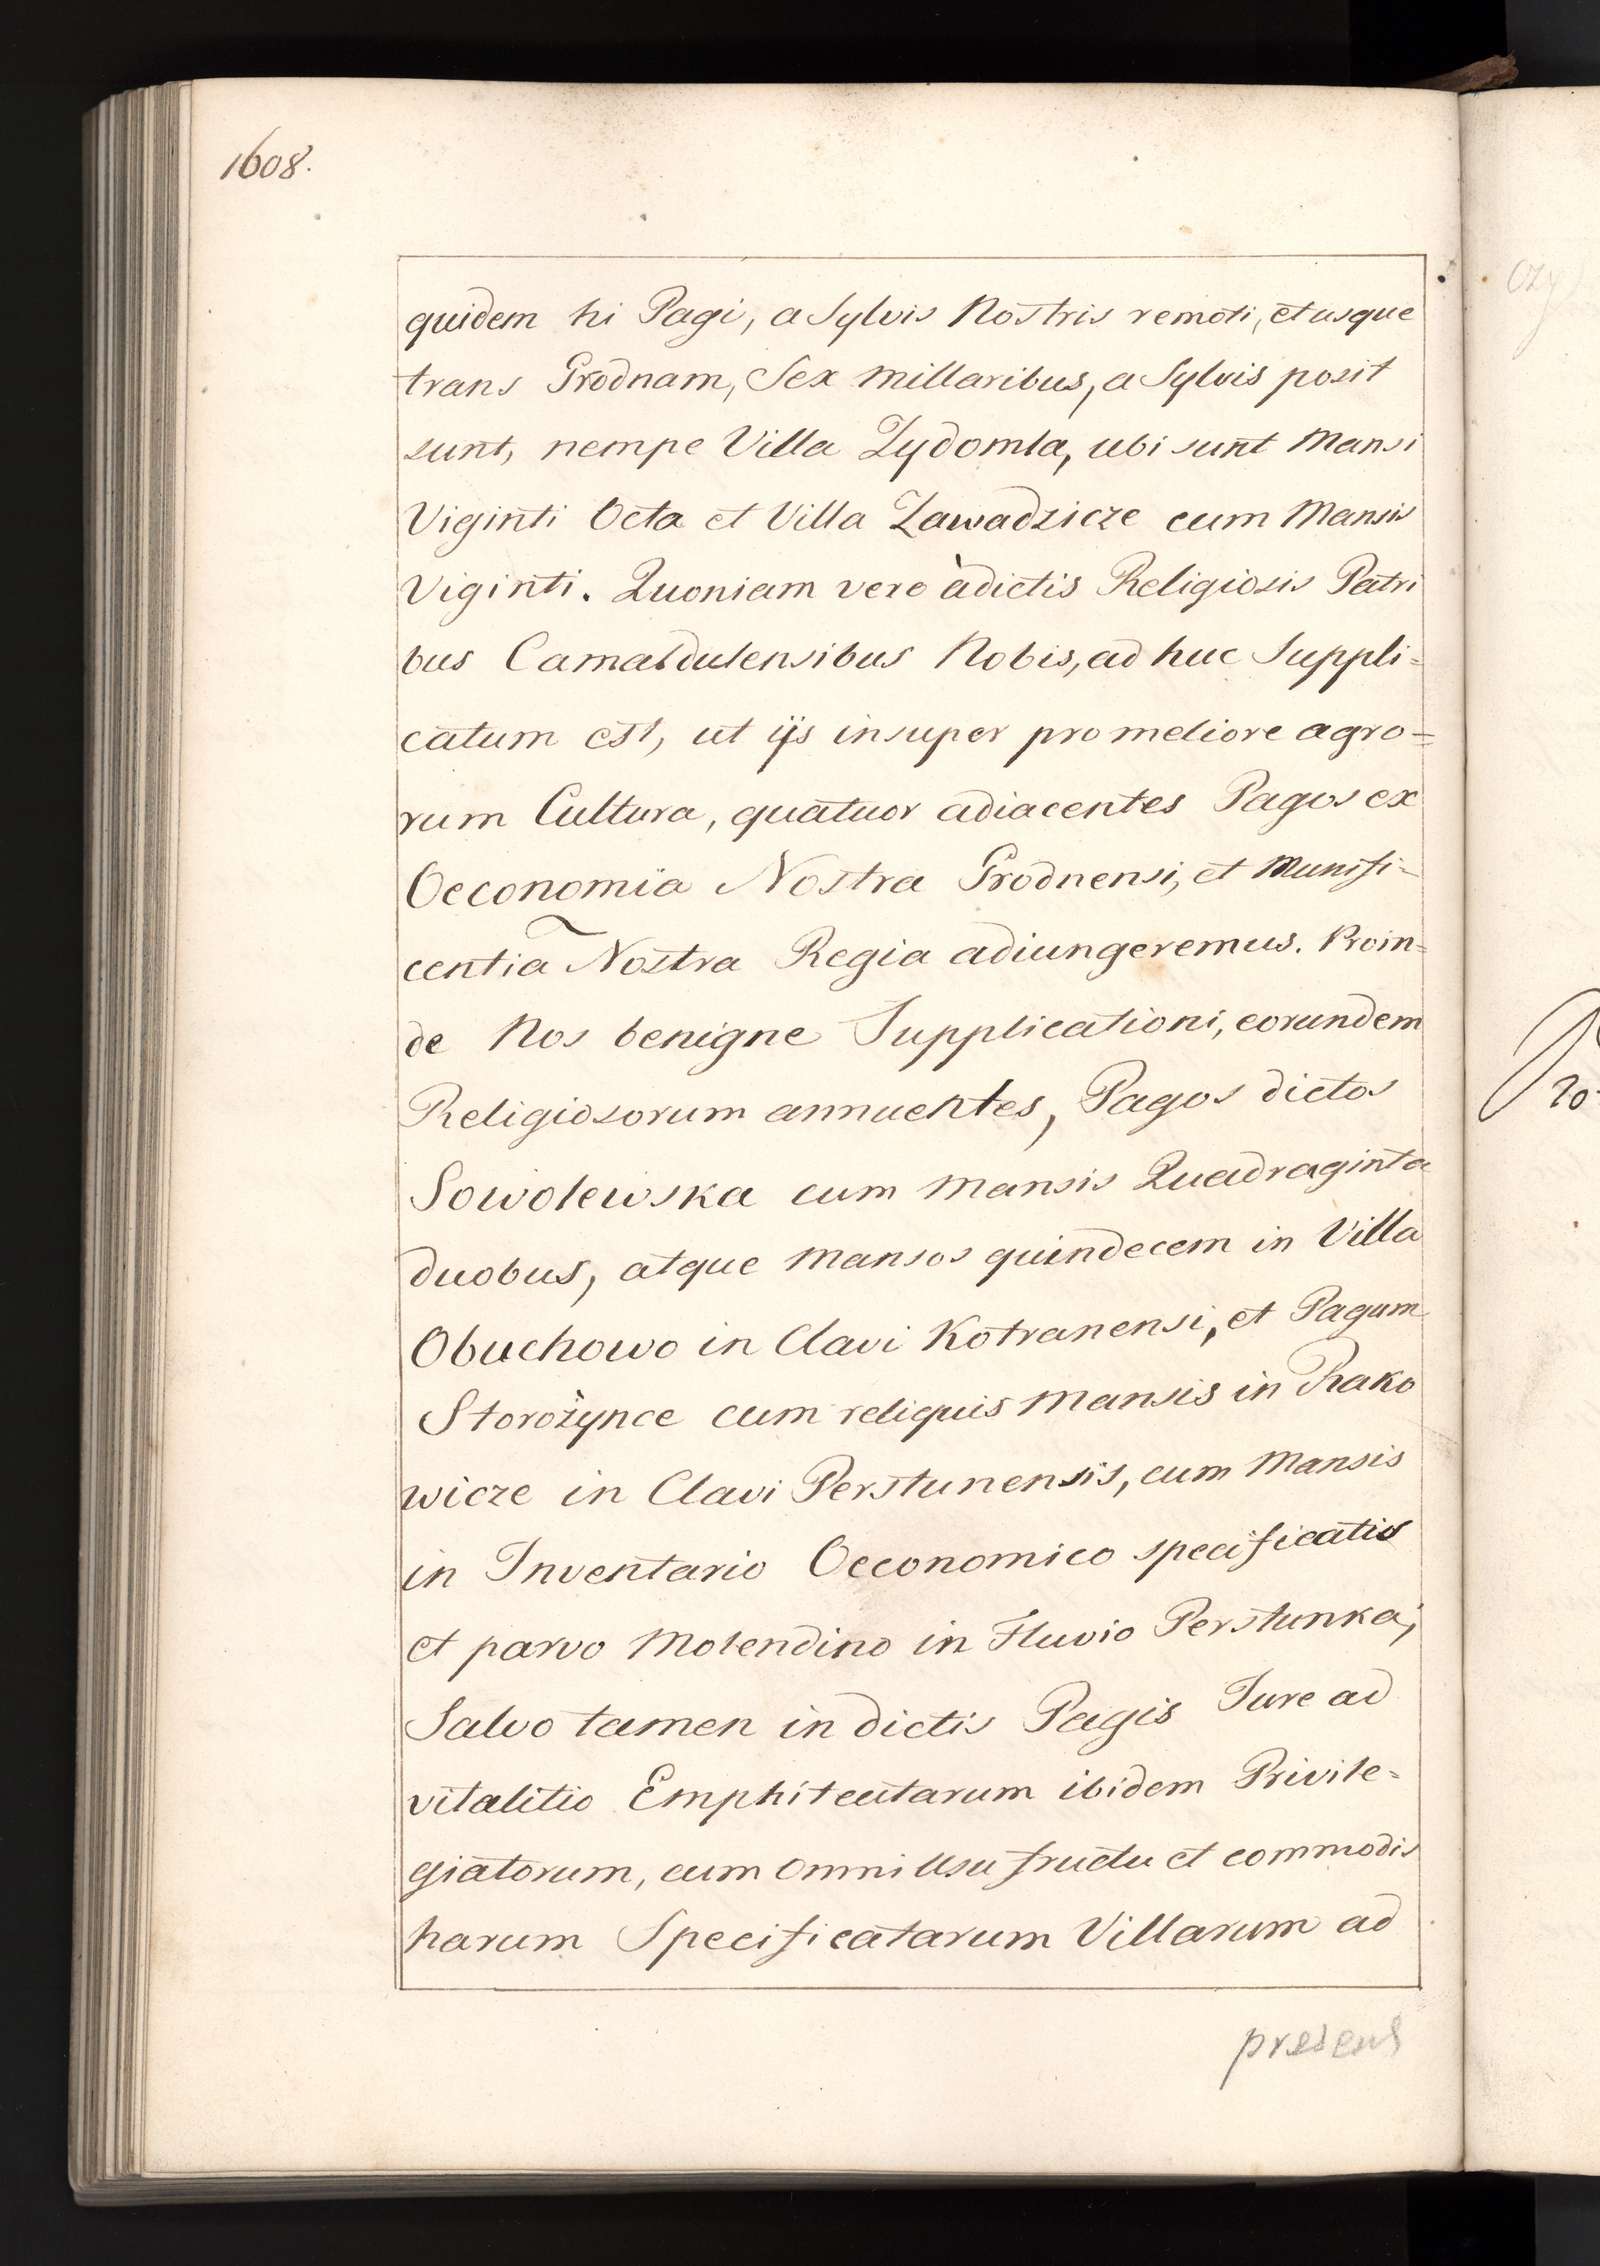 1608.
quidem hi Pagi, a Sylvis Nostris remoti, et usque
trans Grodnam, Sex millaribus, a Sylvis posit
sunt, nempe Villa Zydomla, ubi sunt Mansi
Viginti Octa et Villa Zawadzicze cum Mansis
Viginti. Quoniam vero àdictis Religiosis Patri
bus Camaldulensibus Nobis, ad huc Suppli=
catum est, ut ijs insuper pro meliore agro=
rum Cultura, quatuor adiacentes Pagos ex
Oeconomia Nostra Grodnensi, et Munifi=
centia Nostra Regia adiungeremus. Proin=
de Nos benigne Supplicationi, eorundem
Religiosorum annuentes, Pagos dictos
Sowolewska cum Mansis Quadraginta
duobus, atque Mansos quindecem in Villa
Obuchowo in Clavi Kotranensi, et Pagum
Storożynce cum reliquis Mansis in Rako
wicze in Clavi Perstunensis, cum Mansis
in Inventario Oeconomico specificatis
et parvo Molendino in Fluvio Perstunka;
Salvo tamen in dictis Pagis Jure ad
vitalitio Emphiteutarum ibidem Privile=
giatorum, cum omni Usu fructu et commodis
harum Specificatarum Villarum ad
presens